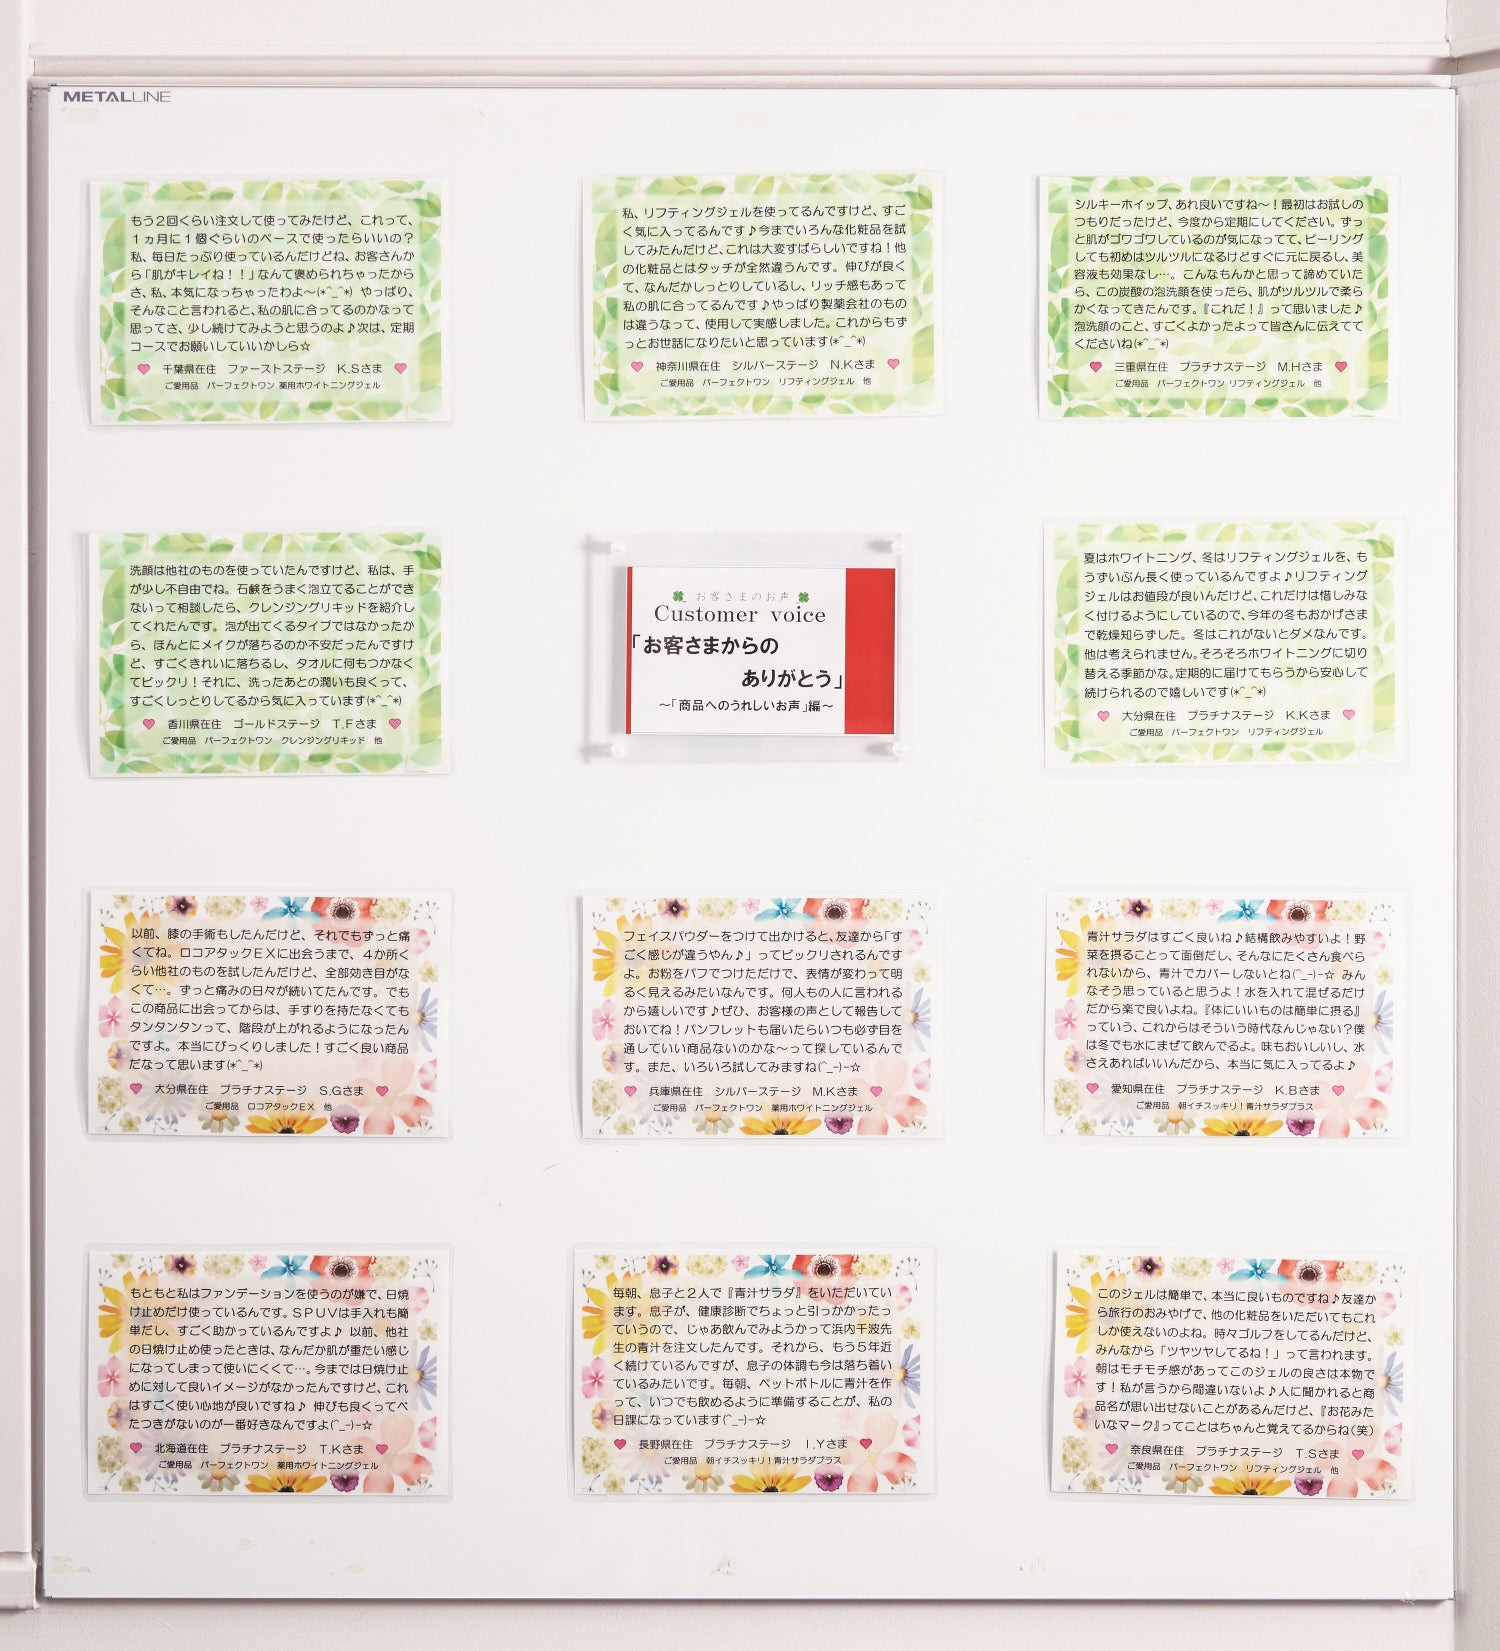 METALLINE
もう２回くらい注文して使ってみたけど、これって、
１ヵ月に１個ぐらいのペースで使ったらいいの？
私、毎日たっぷり使っているんだけどね、お客さんか
ら「肌がキレイね！！」なんて褒められちゃったから
さ、私、本気になっちゃったわよ～(*^_^*) やっぱり、
そんなこと言われると、私の肌に合ってるのかなって
思ってさ、少し続けてみようと思うのよ♪次は、定期
コースでお願いしていいかしら☆
千葉県在住 ファーストステージ K.Sさま
ご愛用品 パーフェクトワン 薬用ホワイトニングジェル
私、リフティングジェルを使ってるんですけど、すご
く気に入ってるんです♪今までいろんな化粧品を試
してみたんだけど、これは大変すばらしいですね！他
の化粧品とはタッチが全然違うんです。伸びが良く
て、なんだかしっとりしているし、リッチ感もあって
私の肌に合ってるんです♪やっぱり製薬会社のもの
は違うなって、使用して実感しました。これからもず
っとお世話になりたいと思っています(*^_^*)
神奈川県在住 シルバーステージ N.Kさま
ご愛用品 パーフェクトワン リフティングジェル 他
シルキーホイップ、あれ良いですね～！最初はお試しの
つもりだったけど、今度から定期にしてください。ずっ
と肌がゴワゴワしているのが気になってて、ピーリング
しても初めはツルツルになるけどすぐに元に戻るし、美
容液も効果なし…。こんなもんかと思って諦めていた
ら、この炭酸の泡洗顔を使ったら、肌がツルツルで柔ら
かくなってきたんです。『これだ！』って思いました♪
泡洗顔のこと、すごくよかったよって皆さんに伝えてて
くださいね(*^_^*)
三重県在住 プラチナステージ M.Hさま
ご愛用品 パーフェクトワン リフティングジェル 他
洗顔は他社のものを使っていたんですけど、私は、手
が少し不自由でね。石鹸をうまく泡立てることができ
ないって相談したら、クレンジングリキッドを紹介し
てくれたんです。泡が出てくるタイプではなかったか
ら、ほんとにメイクが落ちるのか不安だったんですけ
ど、すごくきれいに落ちるし、タオルに何もつかなく
てビックリ！それに、洗ったあとの潤いも良くって、
すごくしっとりしてるから気に入っています(*^_^*)
香川県在住 ゴールドステージ T.Fさま
ご愛用品 パーフェクトワン クレンジングリキッド 他
お客さまのお声
Customer voice
「お客さまからの
ありがとう」
～「商品へのうれしいお声」編～
夏はホワイトニング、冬はリフティングジェルを、も
うずいぶん長く使っているんですよ♪リフティング
ジェルはお値段が良いんだけど、これだけは惜しみな
く付けるようにしているので、今年の冬もおかげさま
で乾燥知らずした。冬はこれがないとダメなんです。
他は考えられません。そろそろホワイトニングに切り
替える季節かな。定期的に届けてもらうから安心して
続けられるので嬉しいです(*^_^*)
大分県在住 プラチナステージ K.Kさま
ご愛用品 パーフェクトワン リフティングジェル
以前、膝の手術もしたんだけど、それでもずっと痛
くてね。ロコアタックＥＸに出会うまで、４か所く
らい他社のものを試したんだけど、全部効き目がな
くて…。ずっと痛みの日々が続いてたんです。でも
この商品に出会ってからは、手すりを持たなくても
タンタンタンって、階段が上がれるようになったん
ですよ。本当にびっくりしました！すごく良い商品
だなって思います(*^_^*)
大分県在住 プラチナステージ S.Gさま
ご愛用品 ロコアタックＥＸ 他
フェイスパウダーをつけて出かけると、友達から「す
ごく感じが違うやん♪」ってビックリされるんです
よ。お粉をパフでつけただけで、表情が変わって明
るく見えるみたいなんです。何人もの人に言われる
から嬉しいです♪ぜひ、お客様の声として報告して
おいてね！パンフレットも届いたらいつも必ず目を
通していい商品ないのかな～って探しているんで
す。また、いろいろ試してみますね(^_-)-☆
兵庫県在住 シルバーステージ M.Kさま
ご愛用品 パーフェクトワン 薬用ホワイトニングジェル
青汁サラダはすごく良いね♪結構飲みやすいよ！野
菜を摂ることって面倒だし、そんなにたくさん食べら
れないから、青汁でカバーしないとね(^_-)-☆ みん
なそう思っていると思うよ！水を入れて混ぜるだけ
だから楽で良いよね。『体にいいものは簡単に摂る』
っていう、これからはそういう時代なんじゃない？僕
は冬でも水にまぜて飲んでるよ。味もおいしいし、水
さえあればいいんだから、本当に気に入ってるよ♪
愛知県在住 プラチナステージ K.Bさま
ご愛用品 朝イチスッキリ！青汁サラダプラス
もともと私はファンデーションを使うのが嫌で、日焼
け止めだけ使っているんです。ＳＰＵＶは手入れも簡
単だし、すごく助かっているんですよ♪ 以前、他社
の日焼け止め使ったときは、なんだか肌が重たい感じ
になってしまって使いにくくて…。今までは日焼け止
めに対して良いイメージがなかったんですけど、これ
はすごく使い心地が良いですね♪ 伸びも良くってべ
たつきがないのが一番好きなんですよ(^_-)-☆
北海道在住 プラチナステージ T.Kさま
ご愛用品 パーフェクトワン 薬用ホワイトニングジェル
毎朝、息子と２人で『青汁サラダ』をいただいてい
ます。息子が、健康診断でちょっと引っかかったっ
ていうので、じゃあ飲んでみようかって浜内千波先
生の青汁を注文したんです。それから、もう５年近
く続けているんですが、息子の体調も今は落ち着い
ているみたいです。毎朝、ペットボトルに青汁を作
って、いつでも飲めるように準備することが、私の
日課になっています(^_-)-☆
長野県在住 プラチナステージ I.Yさま
ご愛用品 朝イチスッキリ！青汁サラダプラス
このジェルは簡単で、本当に良いものですね♪友達か
ら旅行のおみやげで、他の化粧品をいただいてもこれ
しか使えないのよね。時々ゴルフをしてるんだけど、
みんなから「ツヤツヤしてるね！」って言われます。
朝はモチモチ感があってこのジェルの良さは本物で
す！私が言うから間違いないよ♪人に聞かれると商
品名が思い出せないことがあるんだけど、『お花みた
いなマーク』ってことはちゃんと覚えてるからね(笑)
奈良県在住 プラチナステージ T.Sさま
ご愛用品 パーフェクトワン リフティングジェル 他